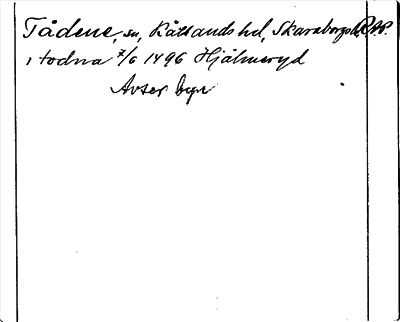 Tådene, sn, Kållands hd, Skaraborgs l. RAP.
i todna 7/6 1496 Hjälmseryd